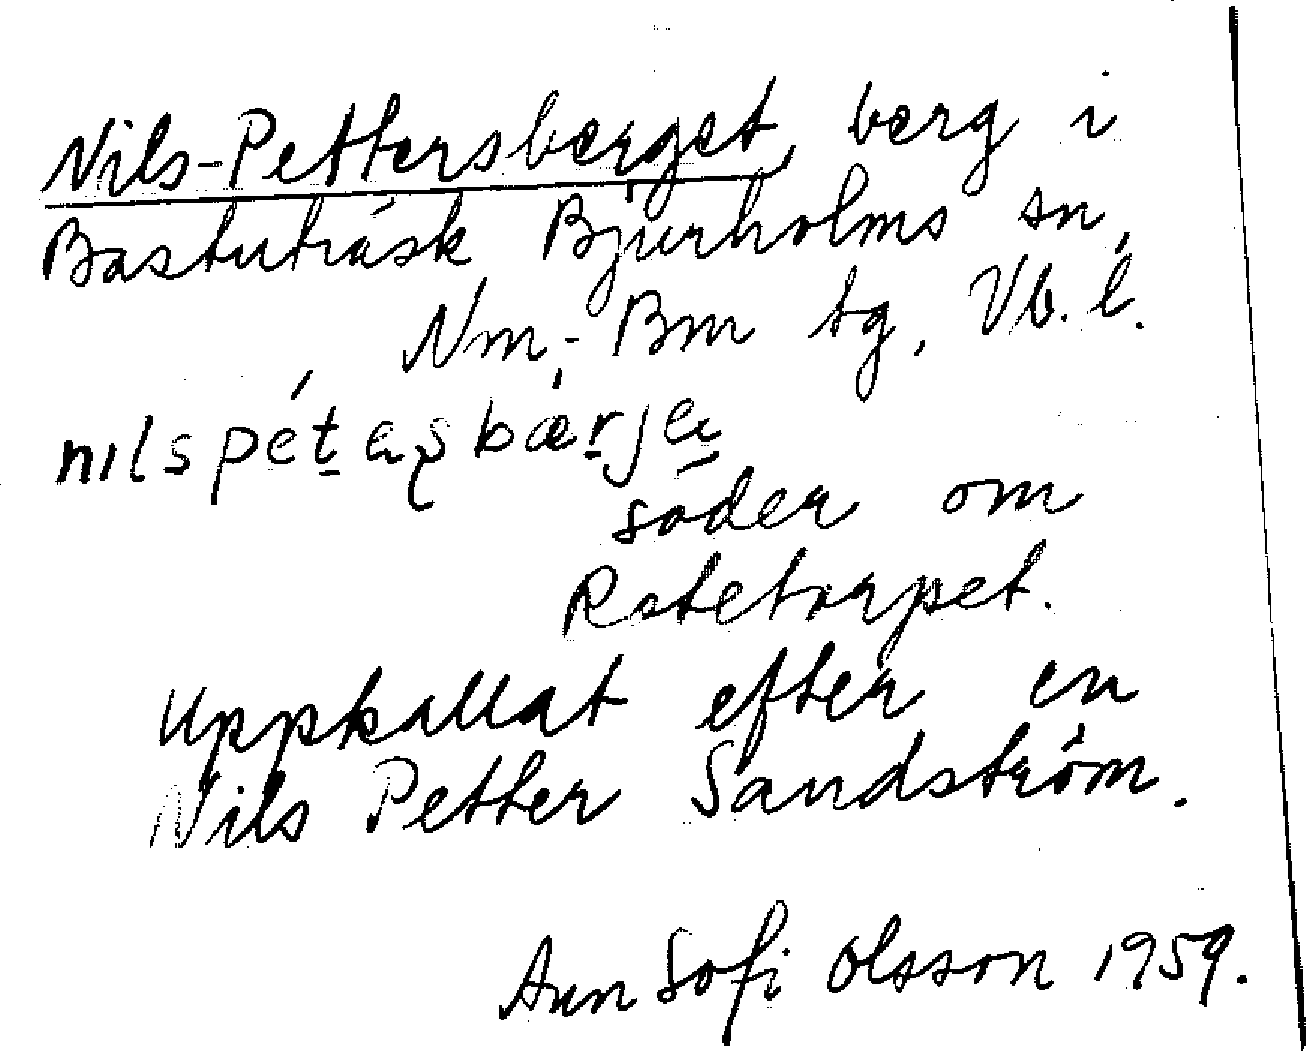 Nils-Pettersberget, berg i
Bastuträsk Bjurholms sn,
Nm-Bm tg, Vb. l.
söder om
Rotetorpet.
Uppkallat efter en
Nils Petter Sandström.
Ann Sofi Olsson 1959.